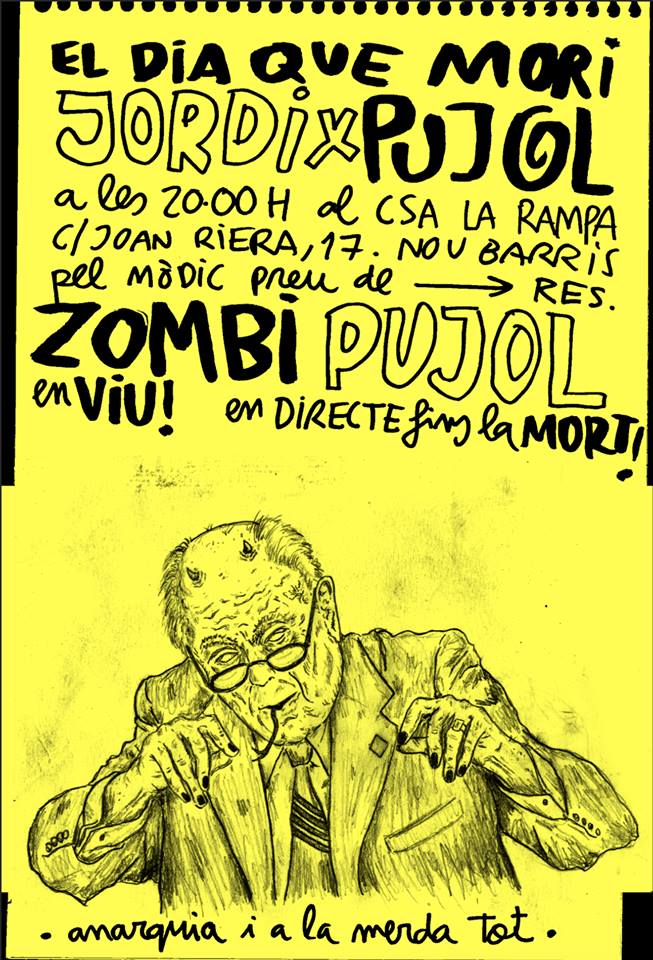 EL DIA QUE MORI
JORDi X PUJOL
a les 20.00 H al CSA LA RAMPA
C/JOAN RIERA, 17. NOU BARRiS
pel mòdic preu de → RES.
ZOMBi PUJOL
en ViU! en DiRECTE fins la MORT!
. anarquia i a la merda tot .